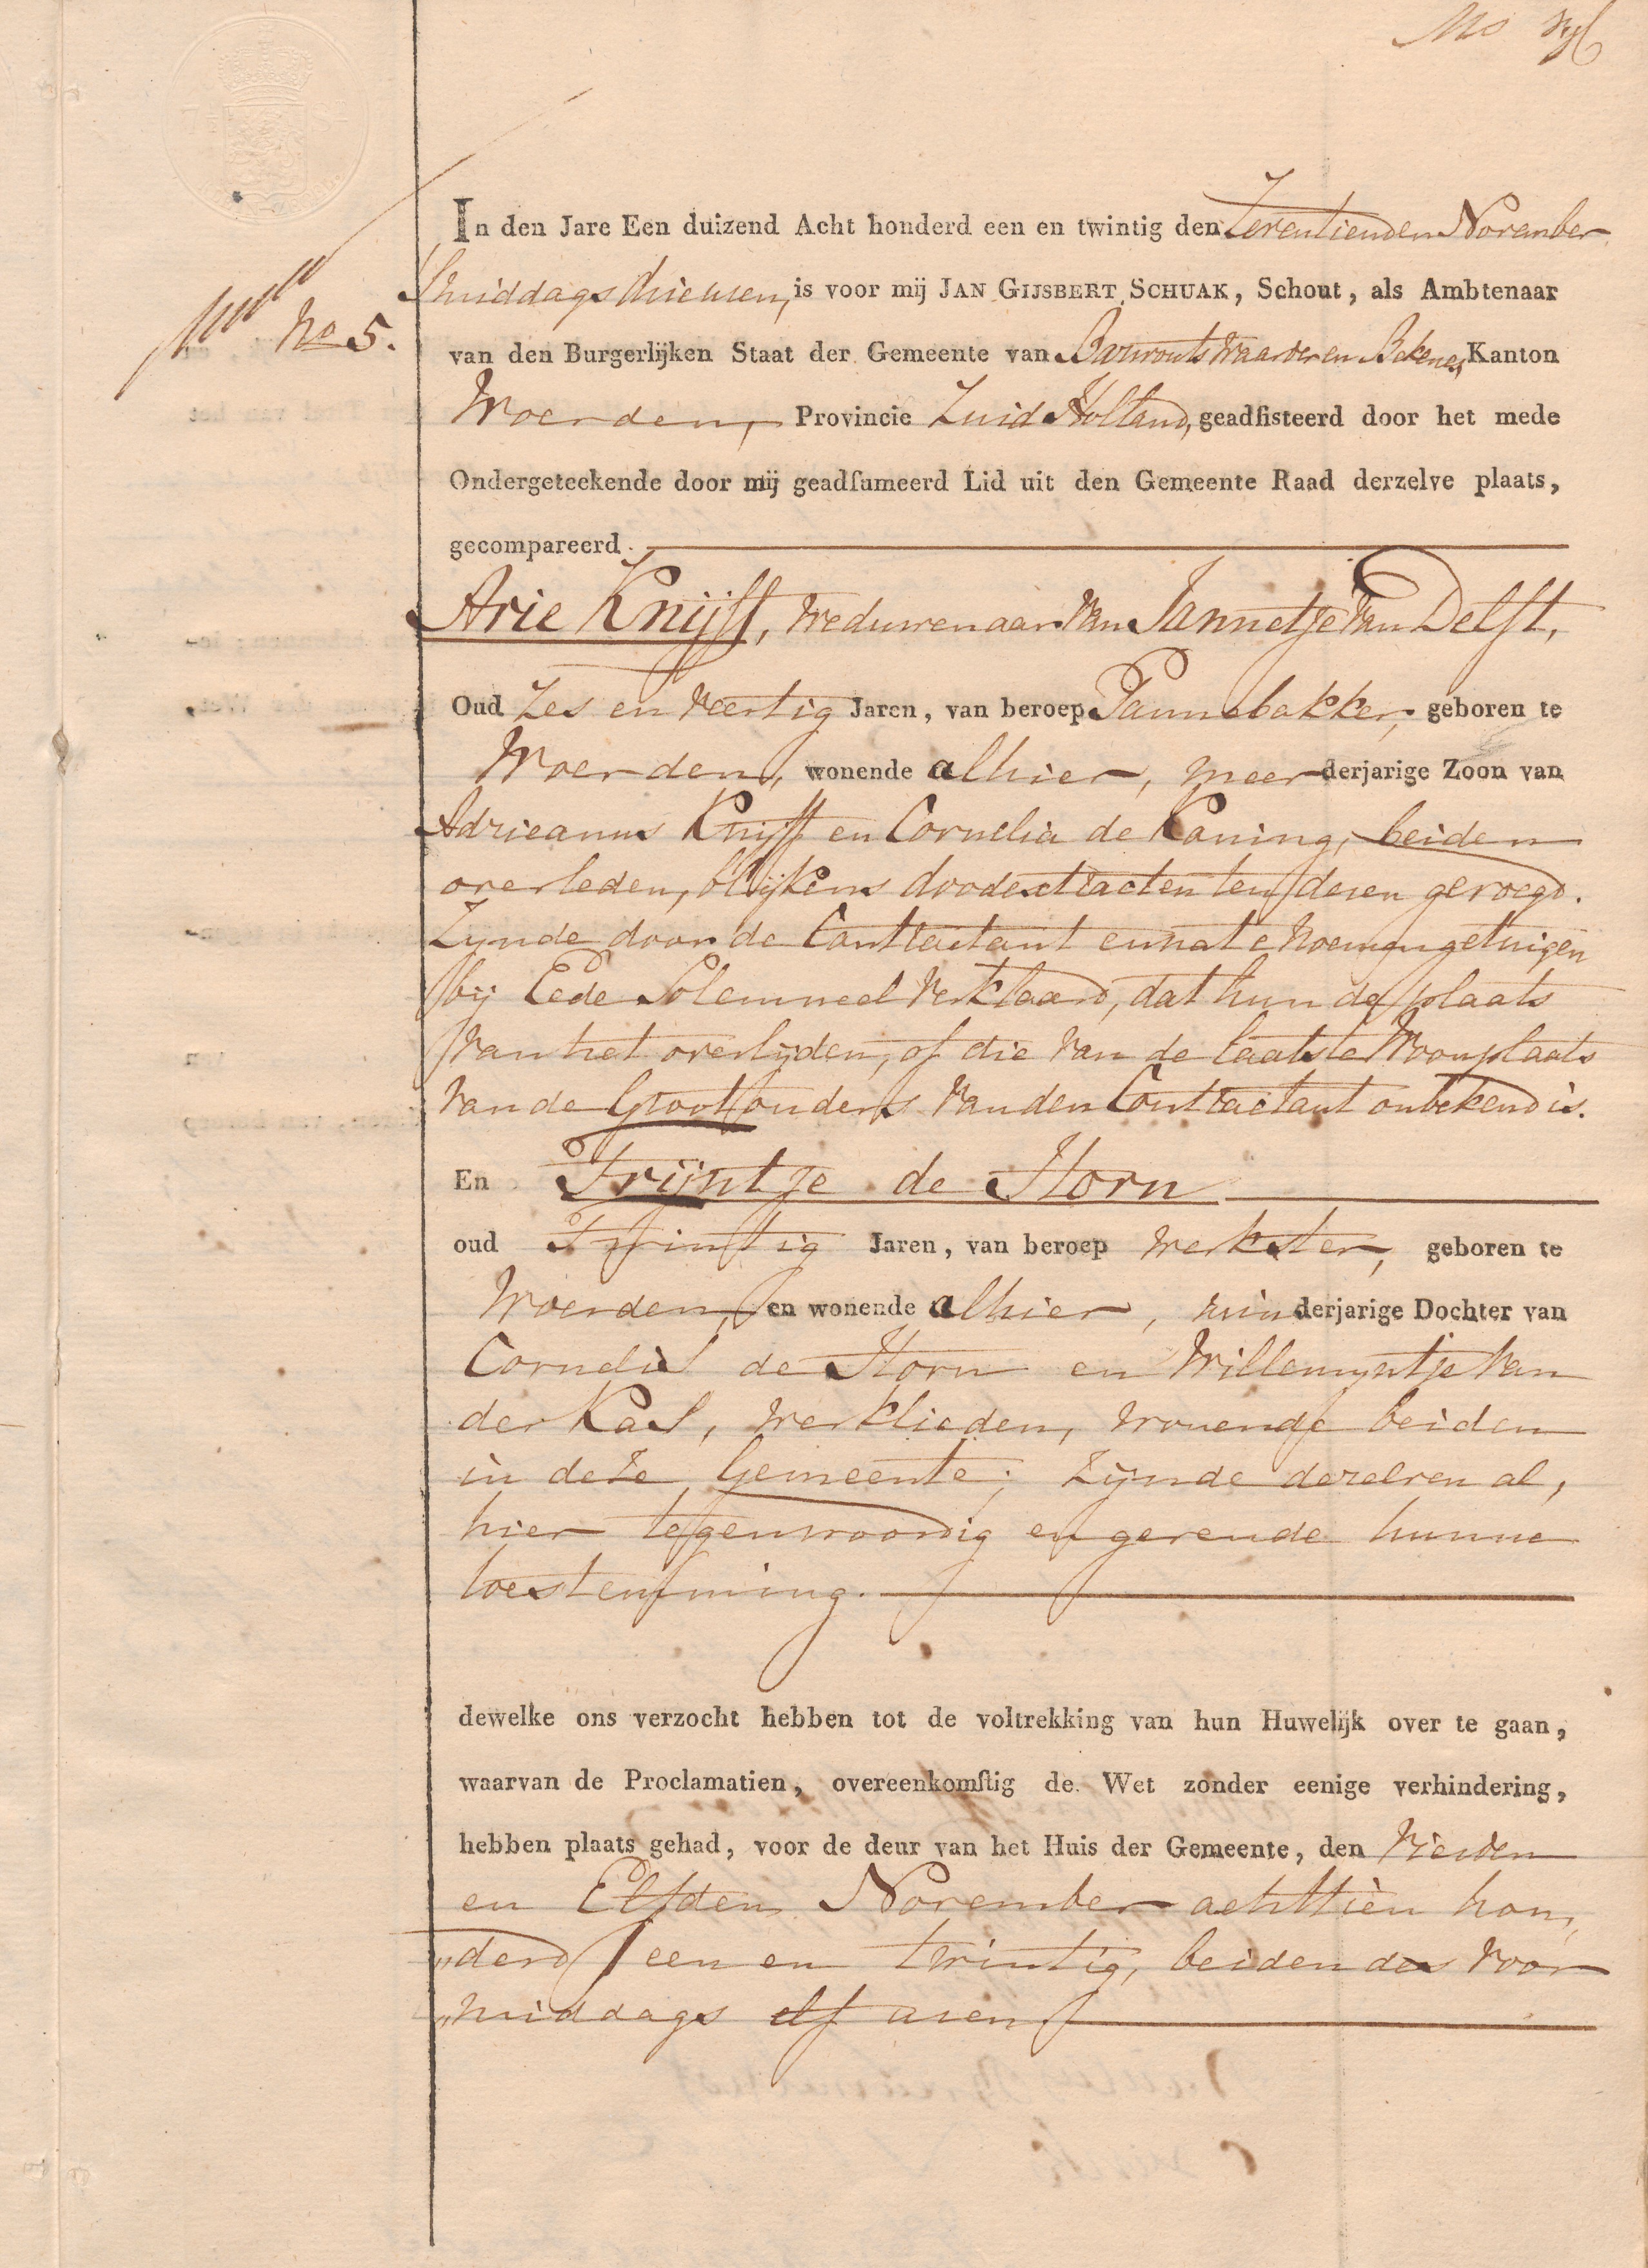 No vijf
In den Jare Een duizend Acht honderd een en twintig den Zeventienden November
smiddags drie uren, is voor mij JAN GIJSBERT SCHUAK, Schout, als Ambtenaar
No 5.
van den Burgerlijken Staat der Gemeente van Barwoutswaarder en Bekenes, Kanton
Woerden, Provincie Zuid Holland, geadſiſteerd door het mede
Ondergeteekende door mij geadſumeerd Lid uit den Gemeente Raad derzelve plaats,
gecompareerd.
Arie Knijff, Weduwenaar van Jannetje van Delft,
Oud Zes en Veertig Jaren, van beroep Pannebakker, geboren te
Woerden, wonende alhier, meerderjarige Zoon van
Adrieanus Knijff en Cornelia de Koning, beiden
overleden, blijkens doodextracten ten desen gevoegd.
Zynde door de Contractant en nate noemen getuigen
bij Eede Solemneel verklaard, dat hun de plaats
van het overlijden, of die van de laatste Woonplaats
van de Grootouders van den Contractant onbekend is.
En Trijntje de Horn
oud Twintig Jaren, van beroep werkster, geboren te
Woerden, en wonende alhier, minderjarige Dochter van
Cornelis de Horn en Willemyntje van
der Kas, werklieden, wonende beiden
in deze Gemeente; zijnde dezelven al,
hier tegenwoordig en gevende hunne
toestemming.
dewelke ons verzocht hebben tot de voltrekking van hun Huwelijk over te gaan,
waarvan de Proclamatien, overeenkomſtig de Wet zonder eenige verhindering,
hebben plaats gehad, voor de deur van het Huis der Gemeente, den Vierden
en Elfden November achttien hon,,
,,derd een en twintig, beiden des voor
,,middags elf uren